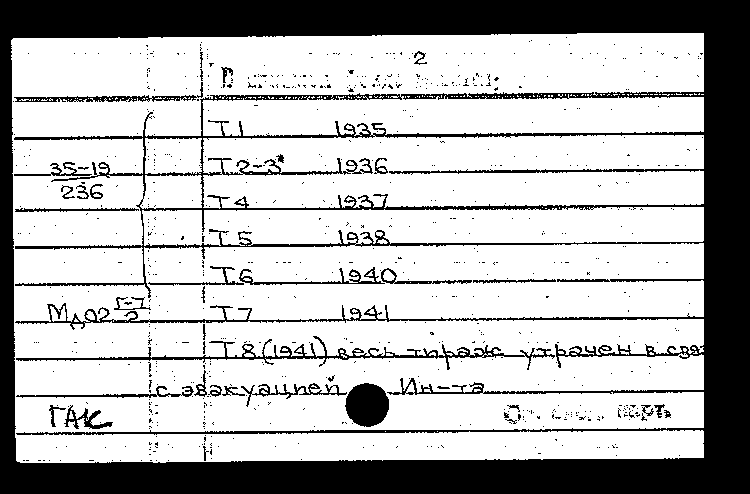 2
Т.1 1935
35-19
236
Т.2-3* 1936
Т.4 1937
Т.5 1938
Т.6 1940
Мд02 Г-7
2
Т.7 1941
Т.8 (1941) весь тираж утрачен в связ
с эвакуацией Ин-та
ГАК